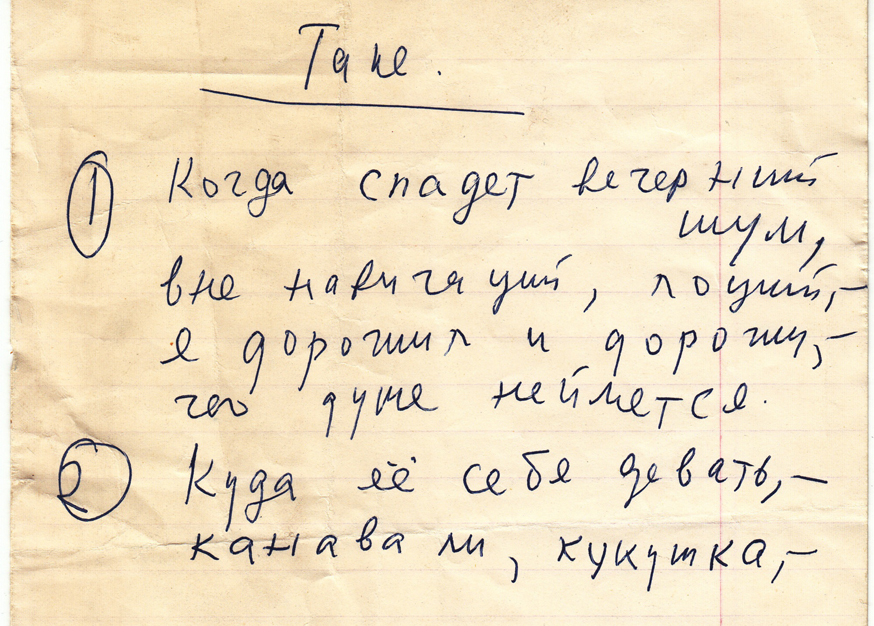 Тане.
① Когда спадет вечерний
шум,
вне навигаций, лоций,-
я дорожил и дорожу,-
чего душе неймется.
② Куда её себя девать,-
канава ли, кукушка,-